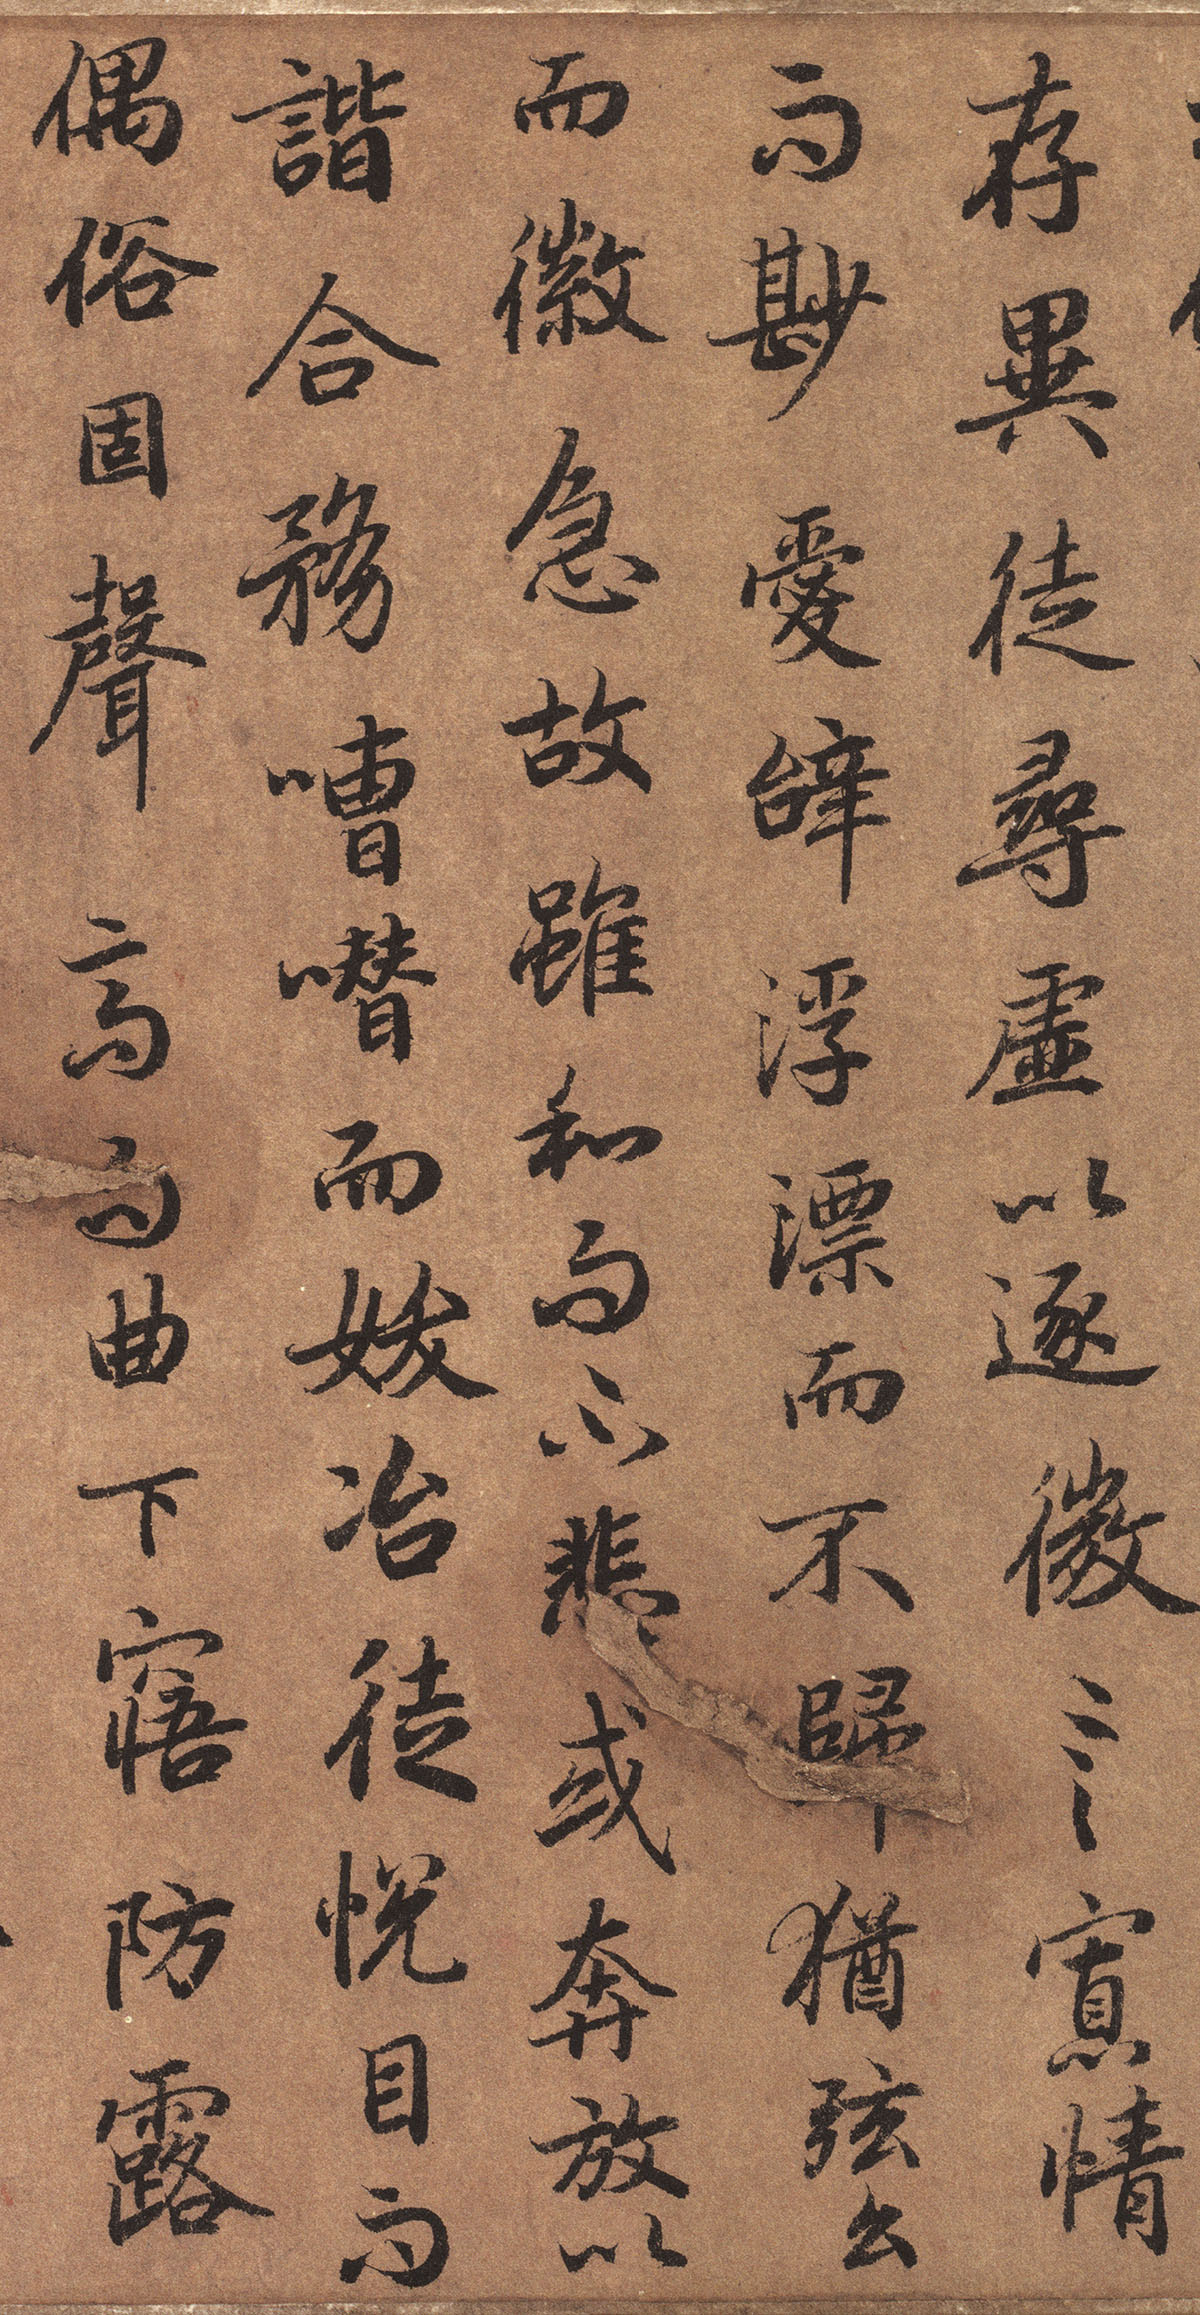 存異徒尋虛以逐微言寡情
而尠愛辝浮漂而不歸猶弦么
而徽急故雖和而不悲或奔放以
諧合務嘈噆而妖冶徒悅目而
偶俗固聲高而曲下寤防露